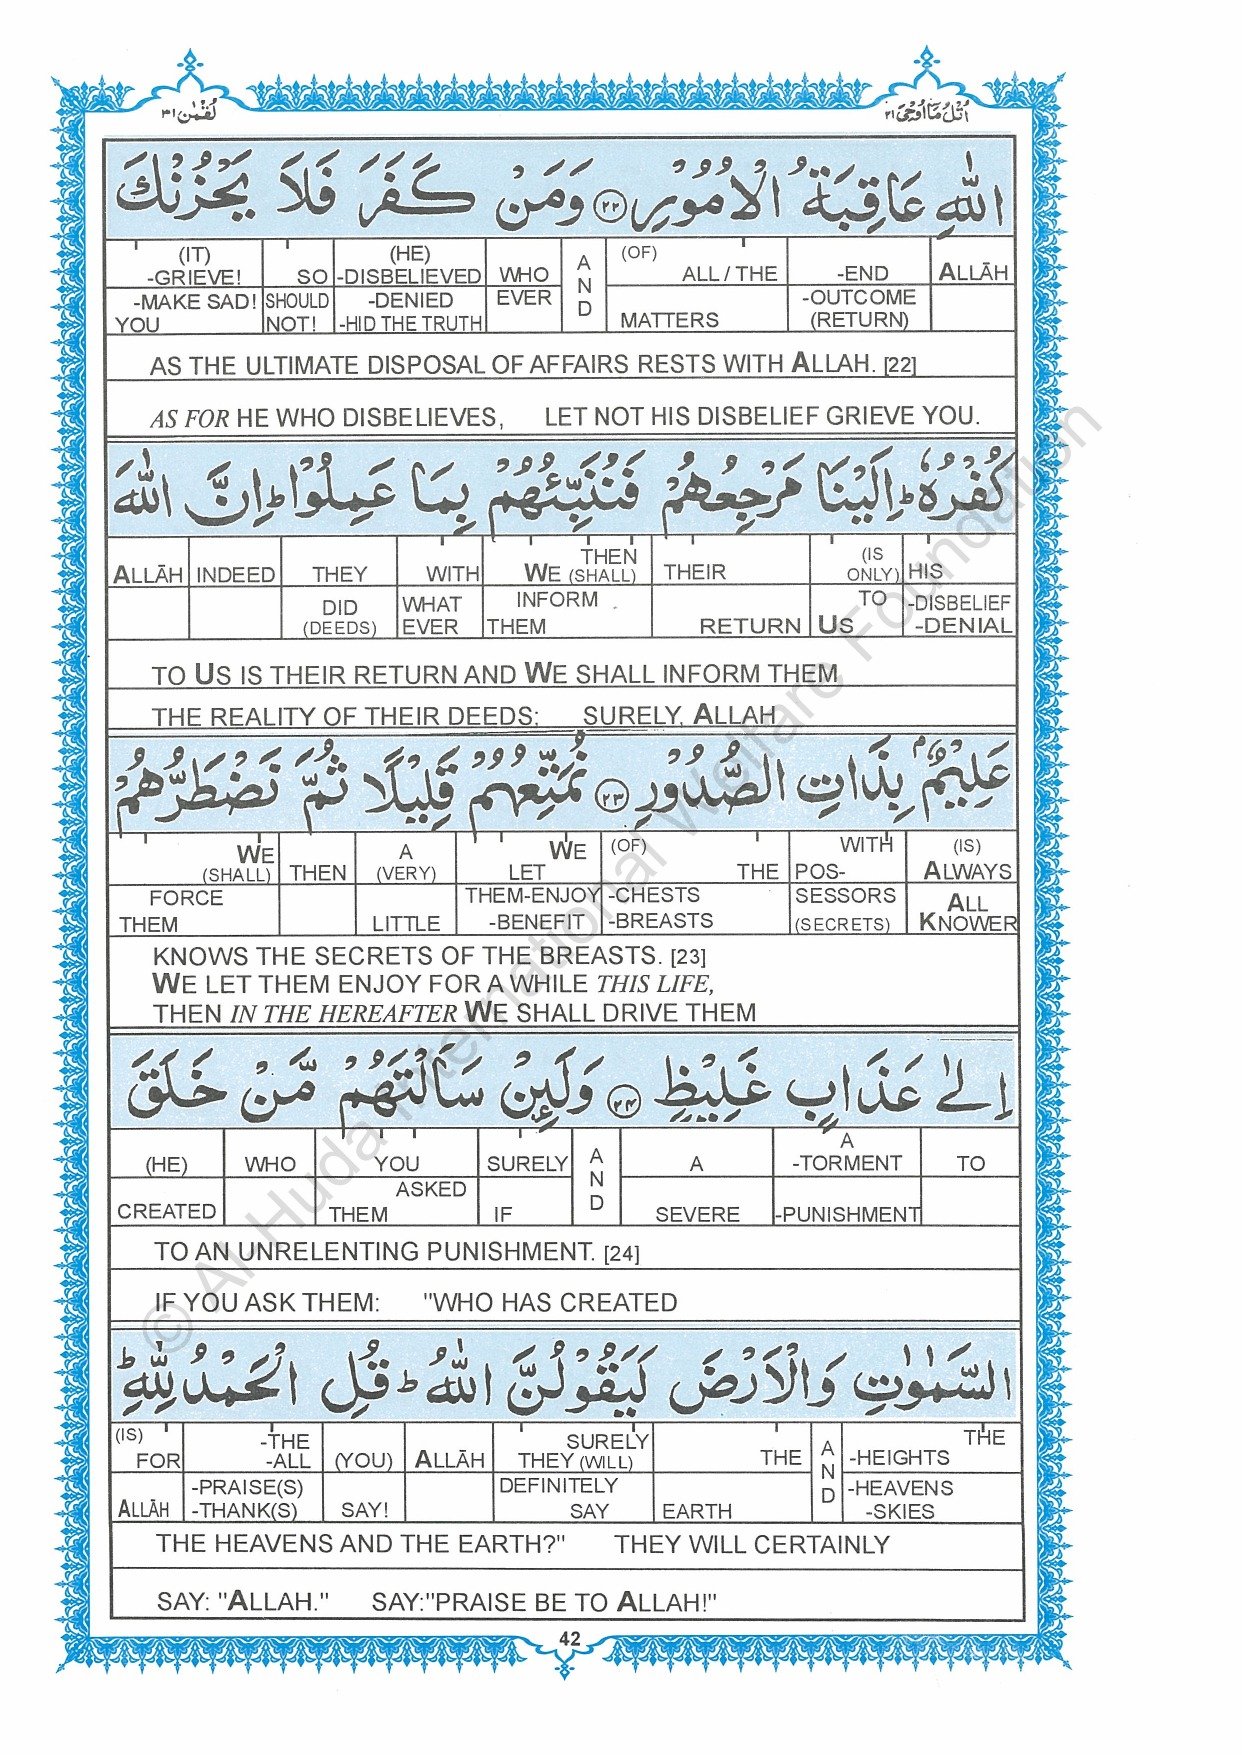 اُتْلُ مَآ اُوْحِیَ ٢١
لُقْمٰن ٣١
اللّٰهِ عَاقِبَةُ الْاُمُوْرِ ﴿٢٢﴾ وَمَنْ كَفَرَ فَلَا يَحْزُنْكَ
(IT) (HE) A (OF)
-GRIEVE! SO -DISBELIEVED WHO N ALL / THE -END ALLĀH
-MAKE SAD! SHOULD -DENIED EVER D -OUTCOME
YOU NOT! -HID THE TRUTH MATTERS (RETURN)
AS THE ULTIMATE DISPOSAL OF AFFAIRS RESTS WITH ALLAH. [22]
AS FOR HE WHO DISBELIEVES, LET NOT HIS DISBELIEF GRIEVE YOU.
كُفْرُهٗ ؕ اِلَيْنَا مَرْجِعُهُمْ فَنُنَبِّئُهُمْ بِمَا عَمِلُوْا ؕ اِنَّ اللّٰهَ
THEN (IS
ALLĀH INDEED THEY WITH WE (SHALL) THEIR ONLY) HIS
DID WHAT INFORM TO -DISBELIEF
(DEEDS) EVER THEM RETURN US -DENIAL
TO US IS THEIR RETURN AND WE SHALL INFORM THEM
THE REALITY OF THEIR DEEDS; SURELY, ALLAH
عَلِيْمٌۢ بِذَاتِ الصُّدُوْرِ ﴿٢٣﴾ نُمَتِّعُهُمْ قَلِيْلًا ثُمَّ نَضْطَرُّهُمْ
WE A WE (OF) WITH (IS)
(SHALL) THEN (VERY) LET THE POS- ALWAYS
FORCE THEM-ENJOY -CHESTS SESSORS ALL
THEM LITTLE -BENEFIT -BREASTS (SECRETS) KNOWER
KNOWS THE SECRETS OF THE BREASTS. [23]
WE LET THEM ENJOY FOR A WHILE THIS LIFE,
THEN IN THE HEREAFTER WE SHALL DRIVE THEM
اِلٰى عَذَابٍ غَلِيْظٍ ﴿٢٤﴾ وَلَئِنْ سَاَلْتَهُمْ مَّنْ خَلَقَ
A A
(HE) WHO YOU SURELY N A -TORMENT TO
ASKED D
CREATED THEM IF SEVERE -PUNISHMENT
TO AN UNRELENTING PUNISHMENT. [24]
IF YOU ASK THEM: "WHO HAS CREATED
السَّمٰوٰتِ وَالْاَرْضَ لَيَقُوْلُنَّ اللّٰهُ ؕ قُلِ الْحَمْدُ لِلّٰهِ ؕ
(IS) -THE SURELY A THE
FOR -ALL (YOU) ALLĀH THEY (WILL) THE N -HEIGHTS
-PRAISE(S) DEFINITELY D -HEAVENS
ALLĀH -THANK(S) SAY! SAY EARTH -SKIES
THE HEAVENS AND THE EARTH?" THEY WILL CERTAINLY
SAY: "ALLAH." SAY:"PRAISE BE TO ALLAH!"
42
© Al-Huda International Welfare Foundation